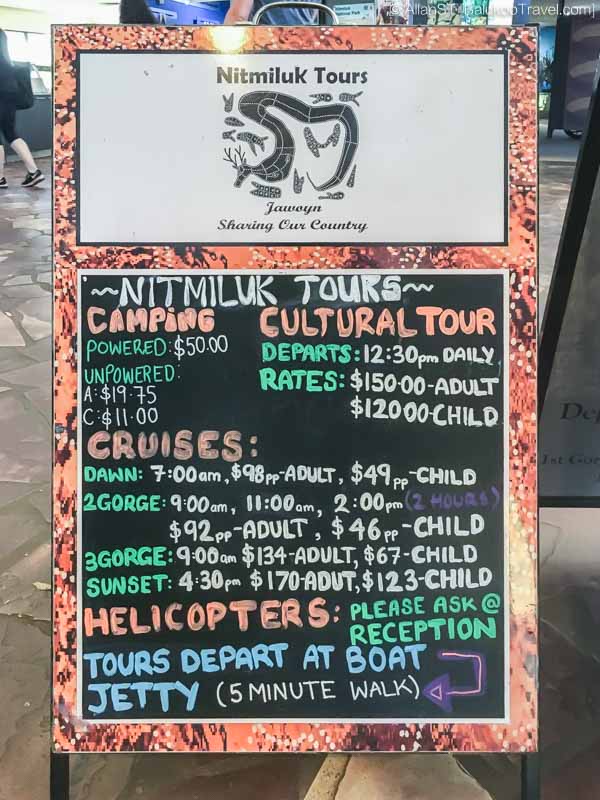 Nitmiluk Tours
Jawoyn
Sharing Our Country
~NITMILUK TOURS~
CAMPING
POWERED: $50.00
UNPOWERED:
A: $19.75
C: $11.00
CULTURAL TOUR
DEPARTS: 12:30pm DAILY
RATES: $150.00-ADULT
$120.00-CHILD
CRUISES:
DAWN: 7:00am, $98pp-ADULT, $49pp-CHILD
2GORGE: 9:00am, 11:00am, 2:00pm (2 HOURS)
$92pp-ADULT, $46pp-CHILD
3GORGE: 9:00am $134-ADULT, $67-CHILD
SUNSET: 4:30pm $170-ADUT, $123-CHILD
HELICOPTERS: PLEASE ASK @
RECEPTION
TOURS DEPART AT BOAT
JETTY (5 MINUTE WALK)